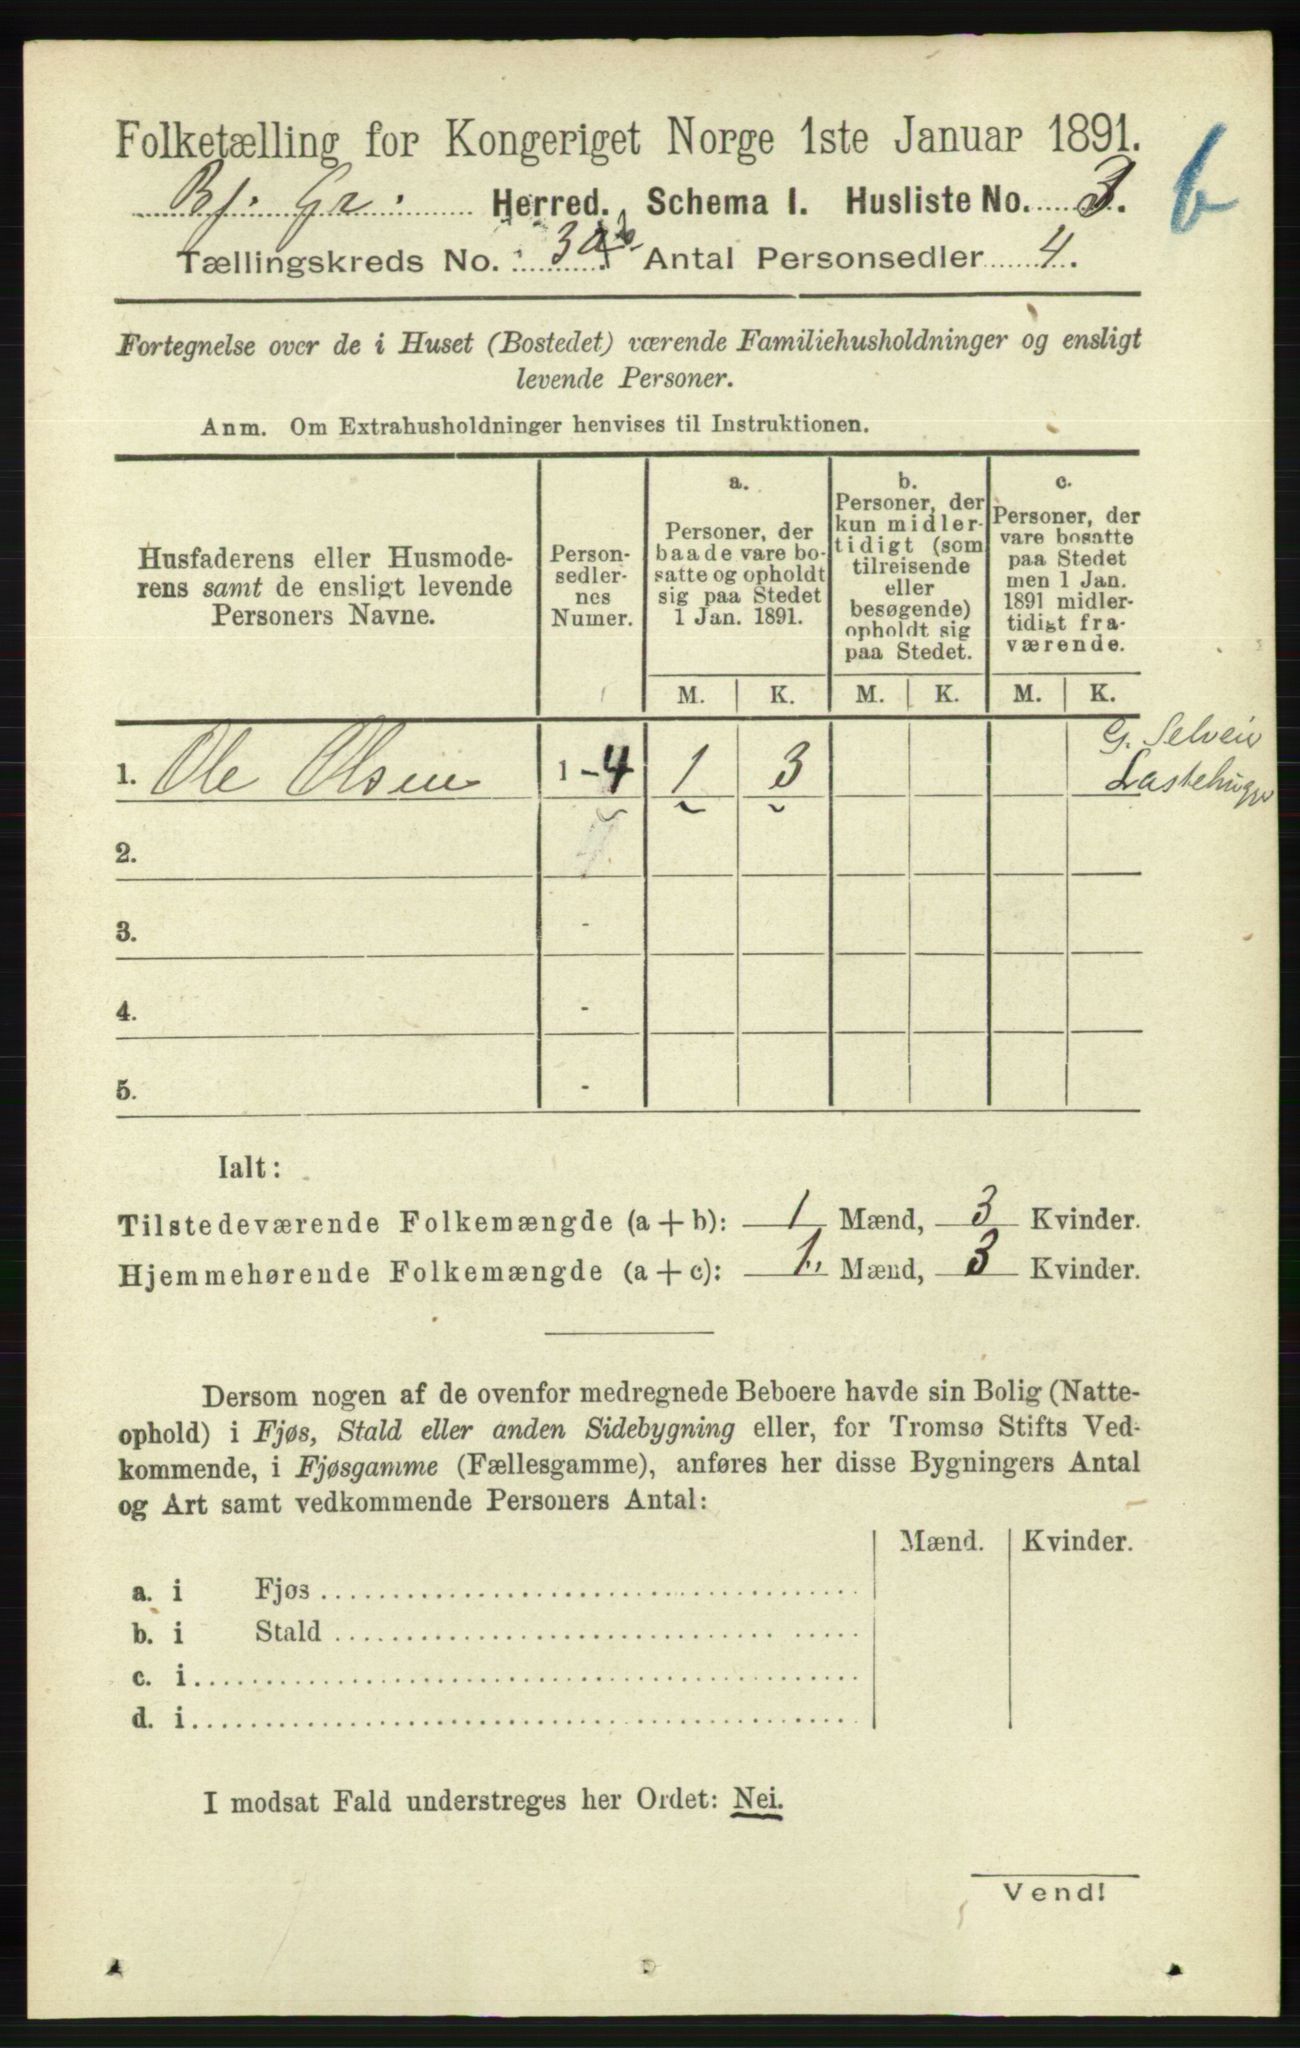 Folketælling for Kongeriget Norge 1ste Januar 1891.
Bj. Gr. Herred. Schema I. Husliste No. 3.
Tællingskreds No. 3 Antal Personsedler 4.
b
Fortegnelse over de i Huset (Bostedet) værende Familiehusholdninger og ensligt
levende Personer.
Anm. Om Extrahusholdninger henvises til Instruktionen.
Husfaderens eller Husmode-
rens samt de ensligt levende
Personers Navne.
Person-
sedler-
nes
Numer.
a.
Personer, der
baade vare bo-
satte og opholdt
sig paa Stedet
1 Jan. 1891.
b.
Personer, der
kun midler-
tidigt (som
tilreisende
eller
besøgende)
opholdt sig
paa Stedet.
c.
Personer, der
vare bosatte
paa Stedet
men 1 Jan.
1891 midler-
tidigt fra-
værende.
M. K. M. K. M. K.
1. Ole Olsen 1-4 1 3
G. Selveier
Lastehugger
2.
3. -
4. -
5. -
Ialt:
Tilstedeværende Folkemængde (a + b): 1 Mænd, 3 Kvinder.
Hjemmehørende Folkemængde (a + c): 1. Mænd, 3 Kvinder.
Dersom nogen af de ovenfor medregnede Beboere havde sin Bolig (Natte-
ophold) i Fjøs, Stald eller anden Sidebygning eller, for Tromsø Stifts Ved-
kommende, i Fjøsgamme (Fællesgamme), anføres her disse Bygningers Antal
og Art samt vedkommende Personers Antal:
Mænd. Kvinder.
a. i Fjøs
b. i Stald
c. i
d. i
I modsat Fald understreges her Ordet: Nei.
Vend!